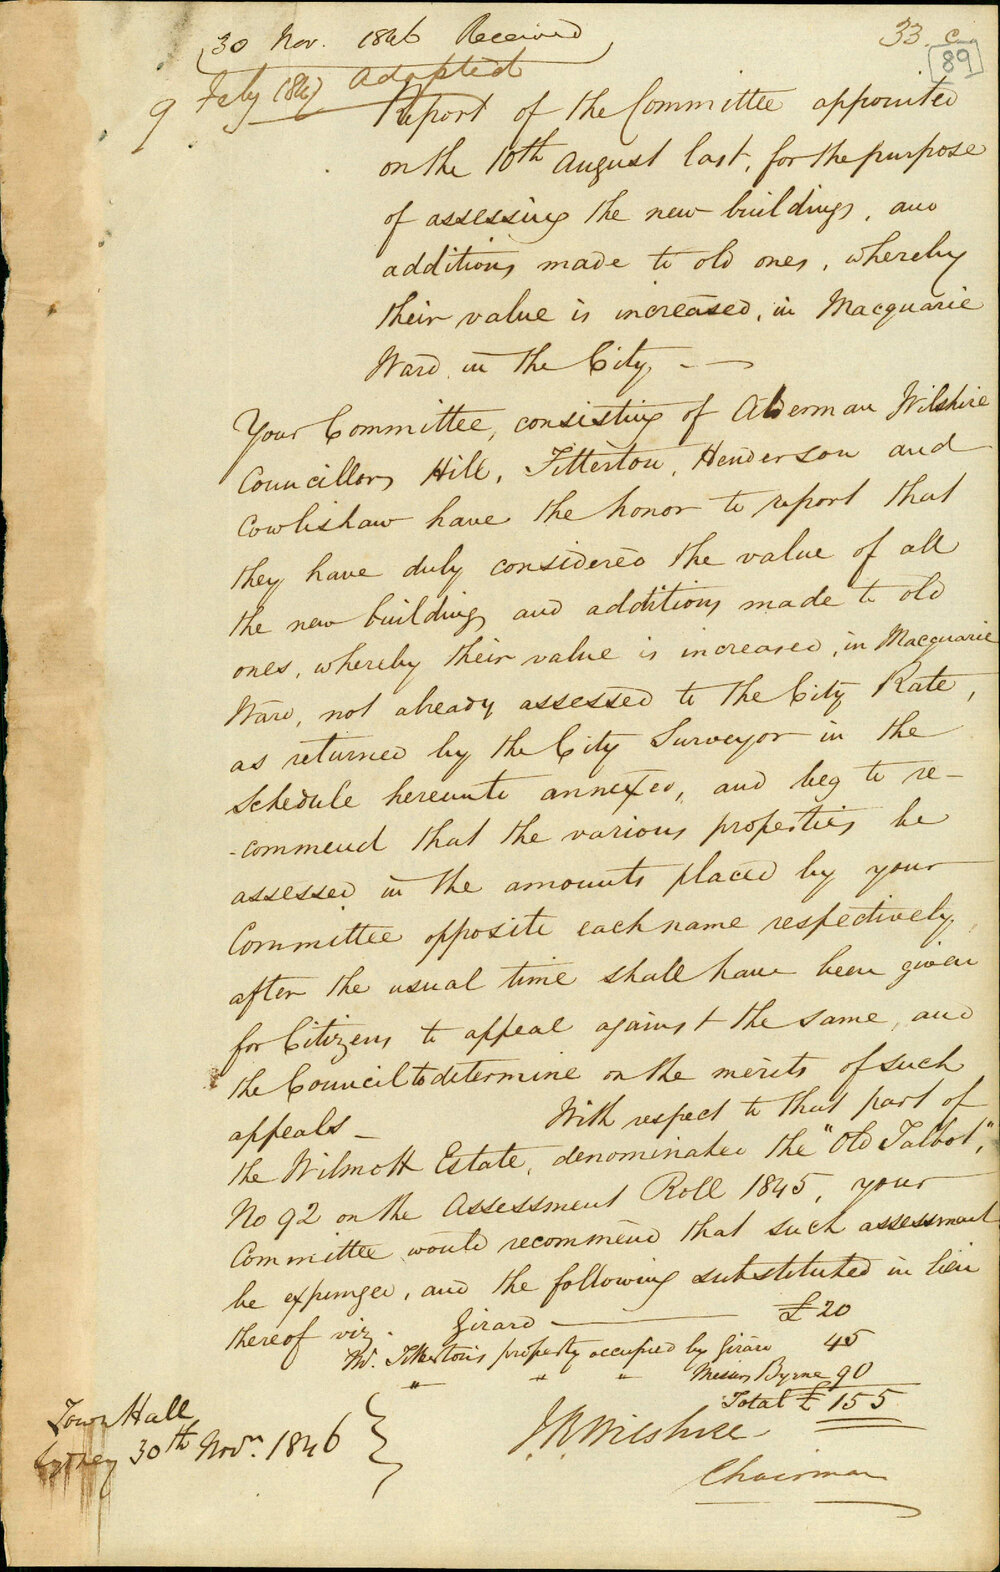 30 Nov. 1846 Received
33 C
89
9 Feby 1847 Adopted
Report of the Committee appointed
on the 10th August last, for the purpose
of assessing the new buildings, and
additions made to old ones, whereby
their value is increased, in Macquarie
Ward in the City –
Your Committee, consisting of Alderman Wilshire
Councillors Hill, Titterton, Henderson and
Cowlishaw have the honor to report that
they have duly considered the value of all
the new buildings and additions made to old
ones, whereby their value is increased, in Macquarie
Ward, not already assessed to the City Rate,
as returned by the City Surveyor in the
Schedule hereunto annexed, and beg to re-
-commend that the various properties be
assessed in the amounts placed by your
Committee opposite each name respectively,
after the usual time shall have been given
for Citizens to appeal against the same, and
the Council to determine on the merits of such
appeals – With respect to that part of
the Wilmott Estate, denominated the "Old Talbot",
No 92 on the Assessment Roll 1845, your
Committee would recommend that such assessment
be expunged, and the following substituted in lieu
thereof viz. Girard — £20
Mr. Titterton's property occupied by Girard 45
" " " Messrs Byrne 90
Total £155
Town Hall
Sydney 30th Novr. 1846
J R Wilshire
Chairman